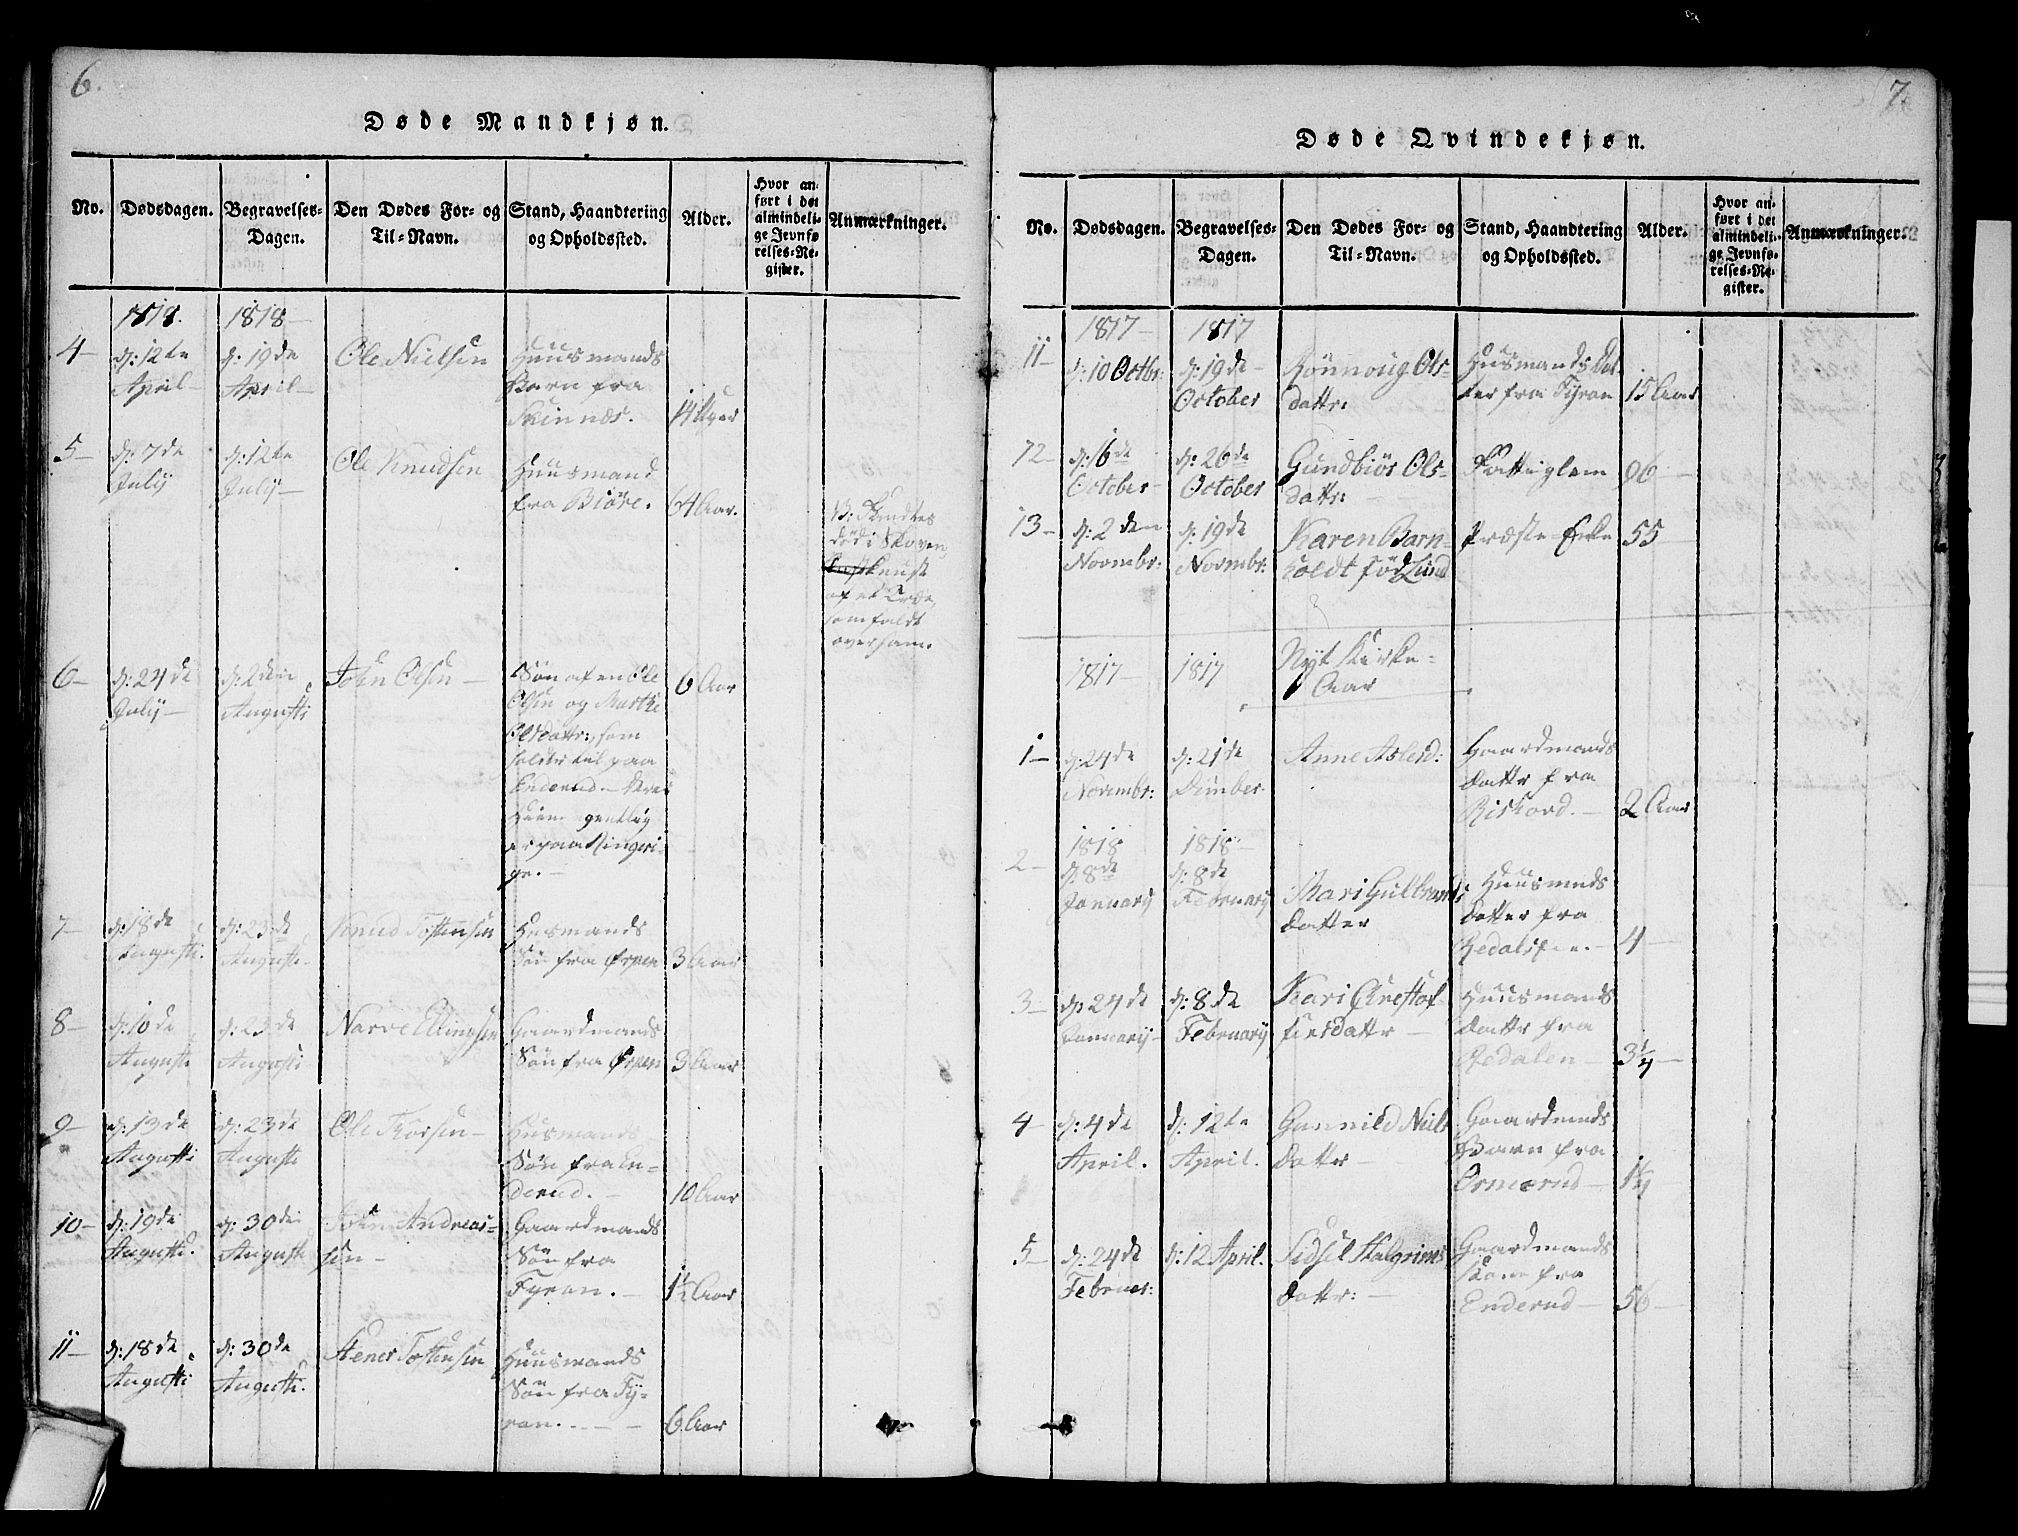 6.
Døde Mandkjøn.
No. Dødsdagen. Begravelses-Dagen. Den Dødes For- og Til-Navn. Stand, Haandtering og Opholdssted. Alder. Hvor anført i det almindelige Jevnførelses-Register. Anmærkninger.
1818. 1818
4 d: 12te April d: 19de April Ole Nielsen Huusmands Barn fra Skinnes. 14 Uger
5 d: 7de July d: 12te July Ole Knudsen Huusmand fra Biöre. 64 Aar. død i Skoven af et Træe, som faldt over ham.
6 d: 24de July d: 2den Augusti John Olsen Søn af en Ole Olsen og Marthe Olsdattr:, som holdt til paa Enderud. Deres Hiem egentlig er paa Ringerige. 6 Aar
7 d: 18de Augusti. d: 23de Augusti Knud Tostensen Husmands Søn fra Ørpen 3 Aar
8 d: 10de Augusti d: 23de Augusti Narve Ellingsen Gaardmands Søn fra Ørpen 3 Aar
9 d: 13de Augusti d: 23de Augusti Ole Thorsen Husmands Søn fra Enderud. 10 Aar
10 d: 19de Augusti. d: 30de Augusti John Andreassen Gaardmands Søn fra Fyran. 1½ Aar
11 d: 18de Augusti d: 30de Augusti. Stener Tostensen Huusmands Søn fra Fyran. 6 Aar
7.
Døde Qvindekjøn.
No. Dødsdagen. Begravelses-Dagen. Den Dødes For- og Til-Navn. Stand, Haandtering og Opholdssted. Alder. Hvor anført i det almindelige Jevnførelses-Register. Anmærkninger.
1817 1817
11 d: 10 Octbr: d: 19de October Rönnoug Olsdattr: Husmands Datter fra Fyran 15 Aar
12 d: 16de October d: 26de October Gundbiör Olsdattr: Fattiglem 96
13 d: 2den Novmbr: d: 19de Novmbr: Karen Barnholdt fød Lund Præste Enke 55
1817 1817 Nyt Kirke-Aar
1 d: 24de Novembr: d: 21de Anne Aslesd: Gaardmands Dattr fra 2 Aar
1818 1818
2 d: 8de January d: 8de February Mari Gulbrands Datter Huusmnds Datter fra 4
3 d: 24de January d: 8de February Kari Christoffersdattr Huusmands Dattr fra Redalen 3¼
4 d: 4de April. d: 12te April. Gunnild Niels Dattr Gaardmnds Barn fra Ormerud 1¼
5 d: 24de Februar: d: 12 April. Sidsel Halgrims Dattr: Gaardmands Kone fra Enderud 56